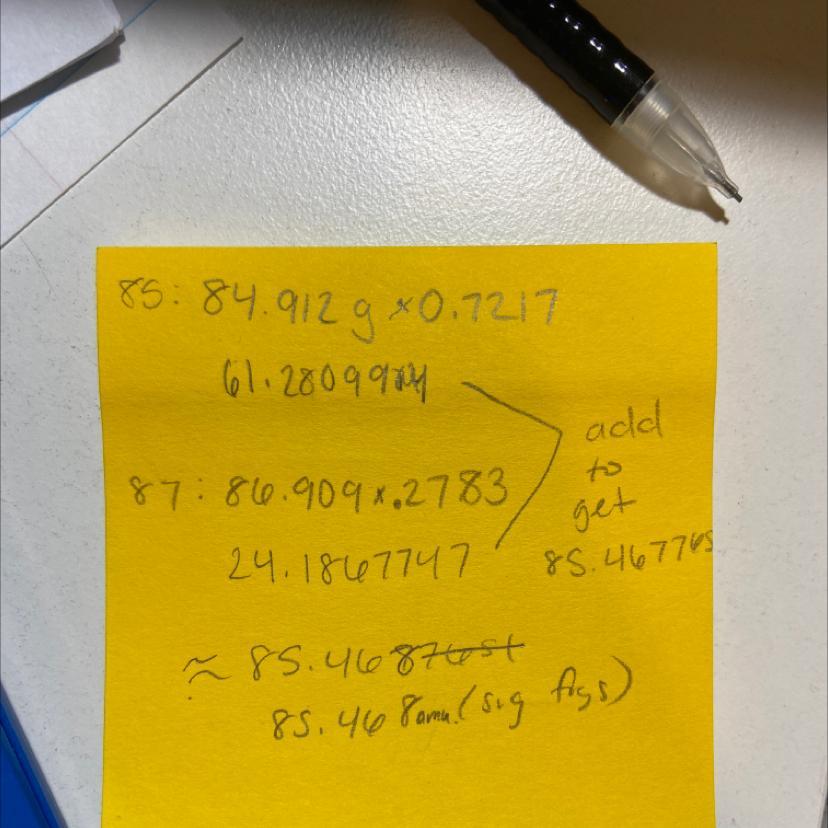 85: 84.912 g × 0.7217
61.2809904
add
to
get
85.467765
87: 86.909 × .2783
24.1867747
≈ 85.468
85.468 amu. (sig figs)